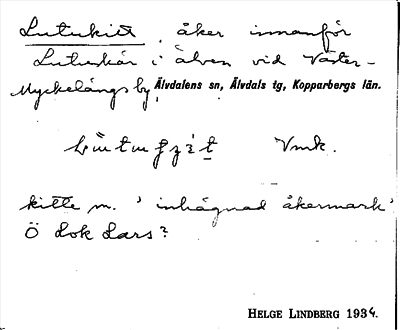 Lutukitt, åker innanför
Lutuskär i älven vid Väster-
Myckelängs by, Älvdalens sn, Älvdals tg, Kopparbergs län.
Vmk.
kitte m. 'inhägnad åkermark'
Ö Lok Lars?
HELGE LINDBERG 1934.